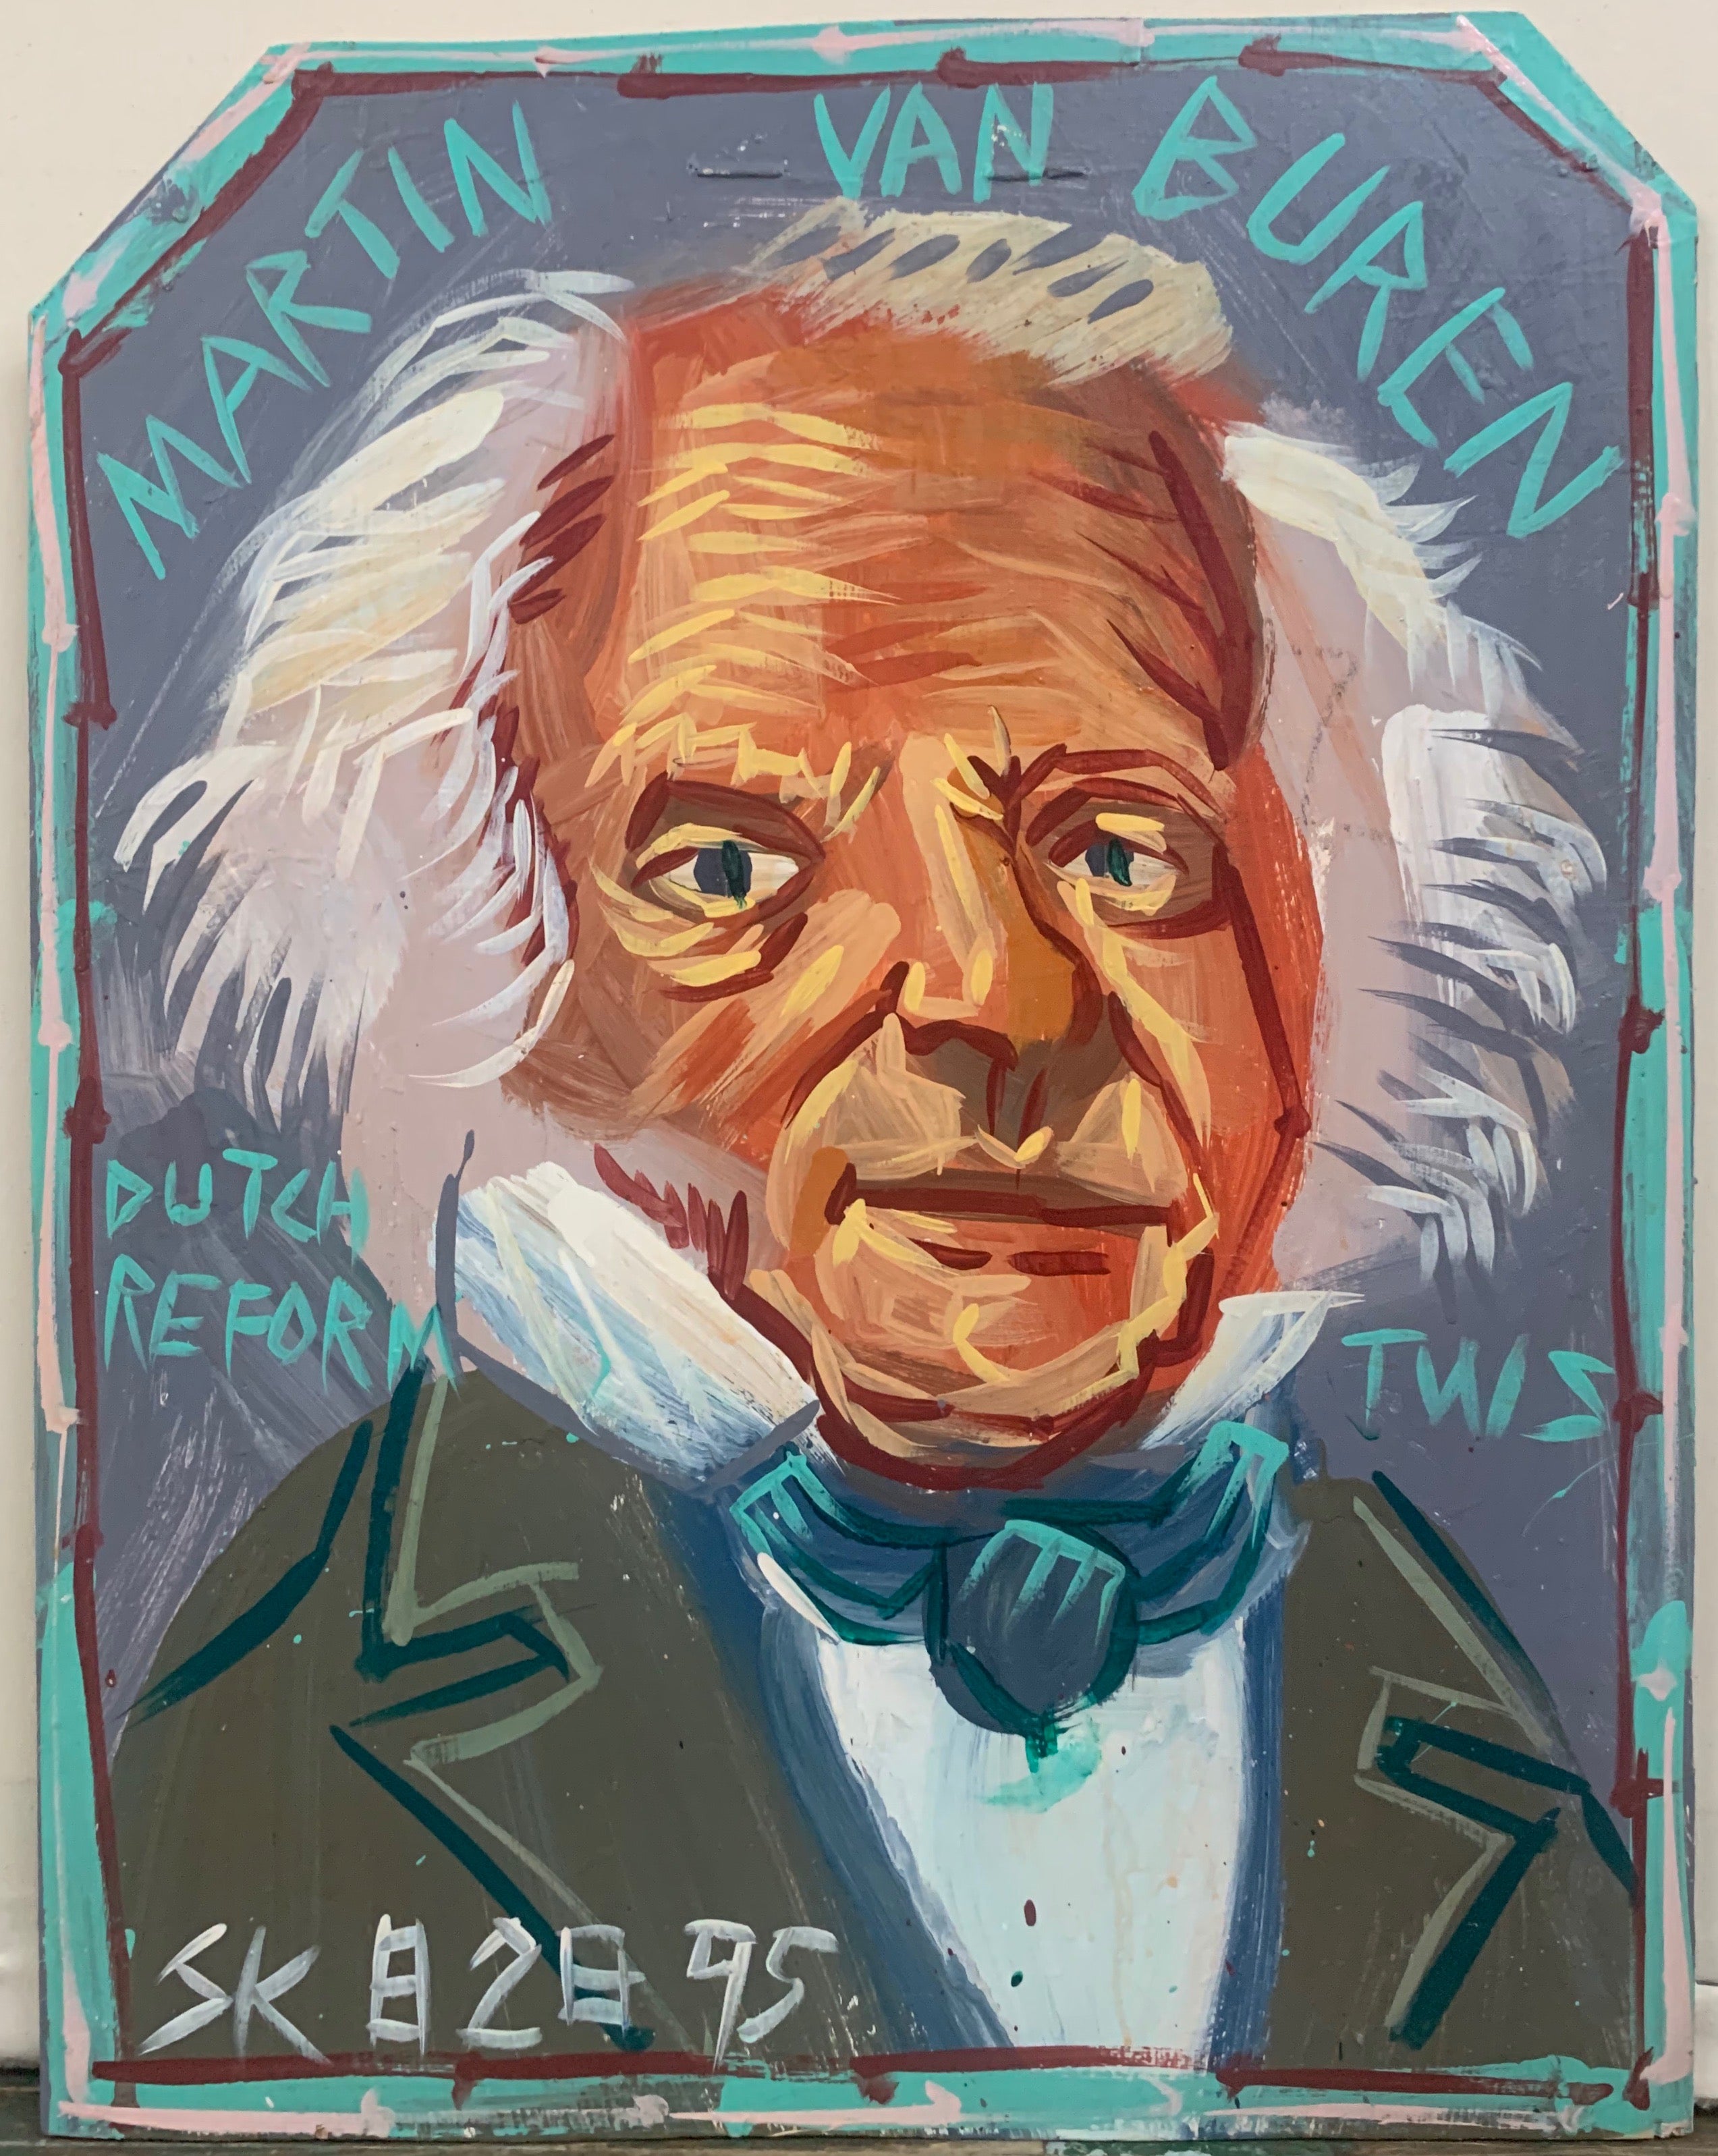 MARTIN VAN BUREN
DUTCH
REFORM
TWIS
SK 82895